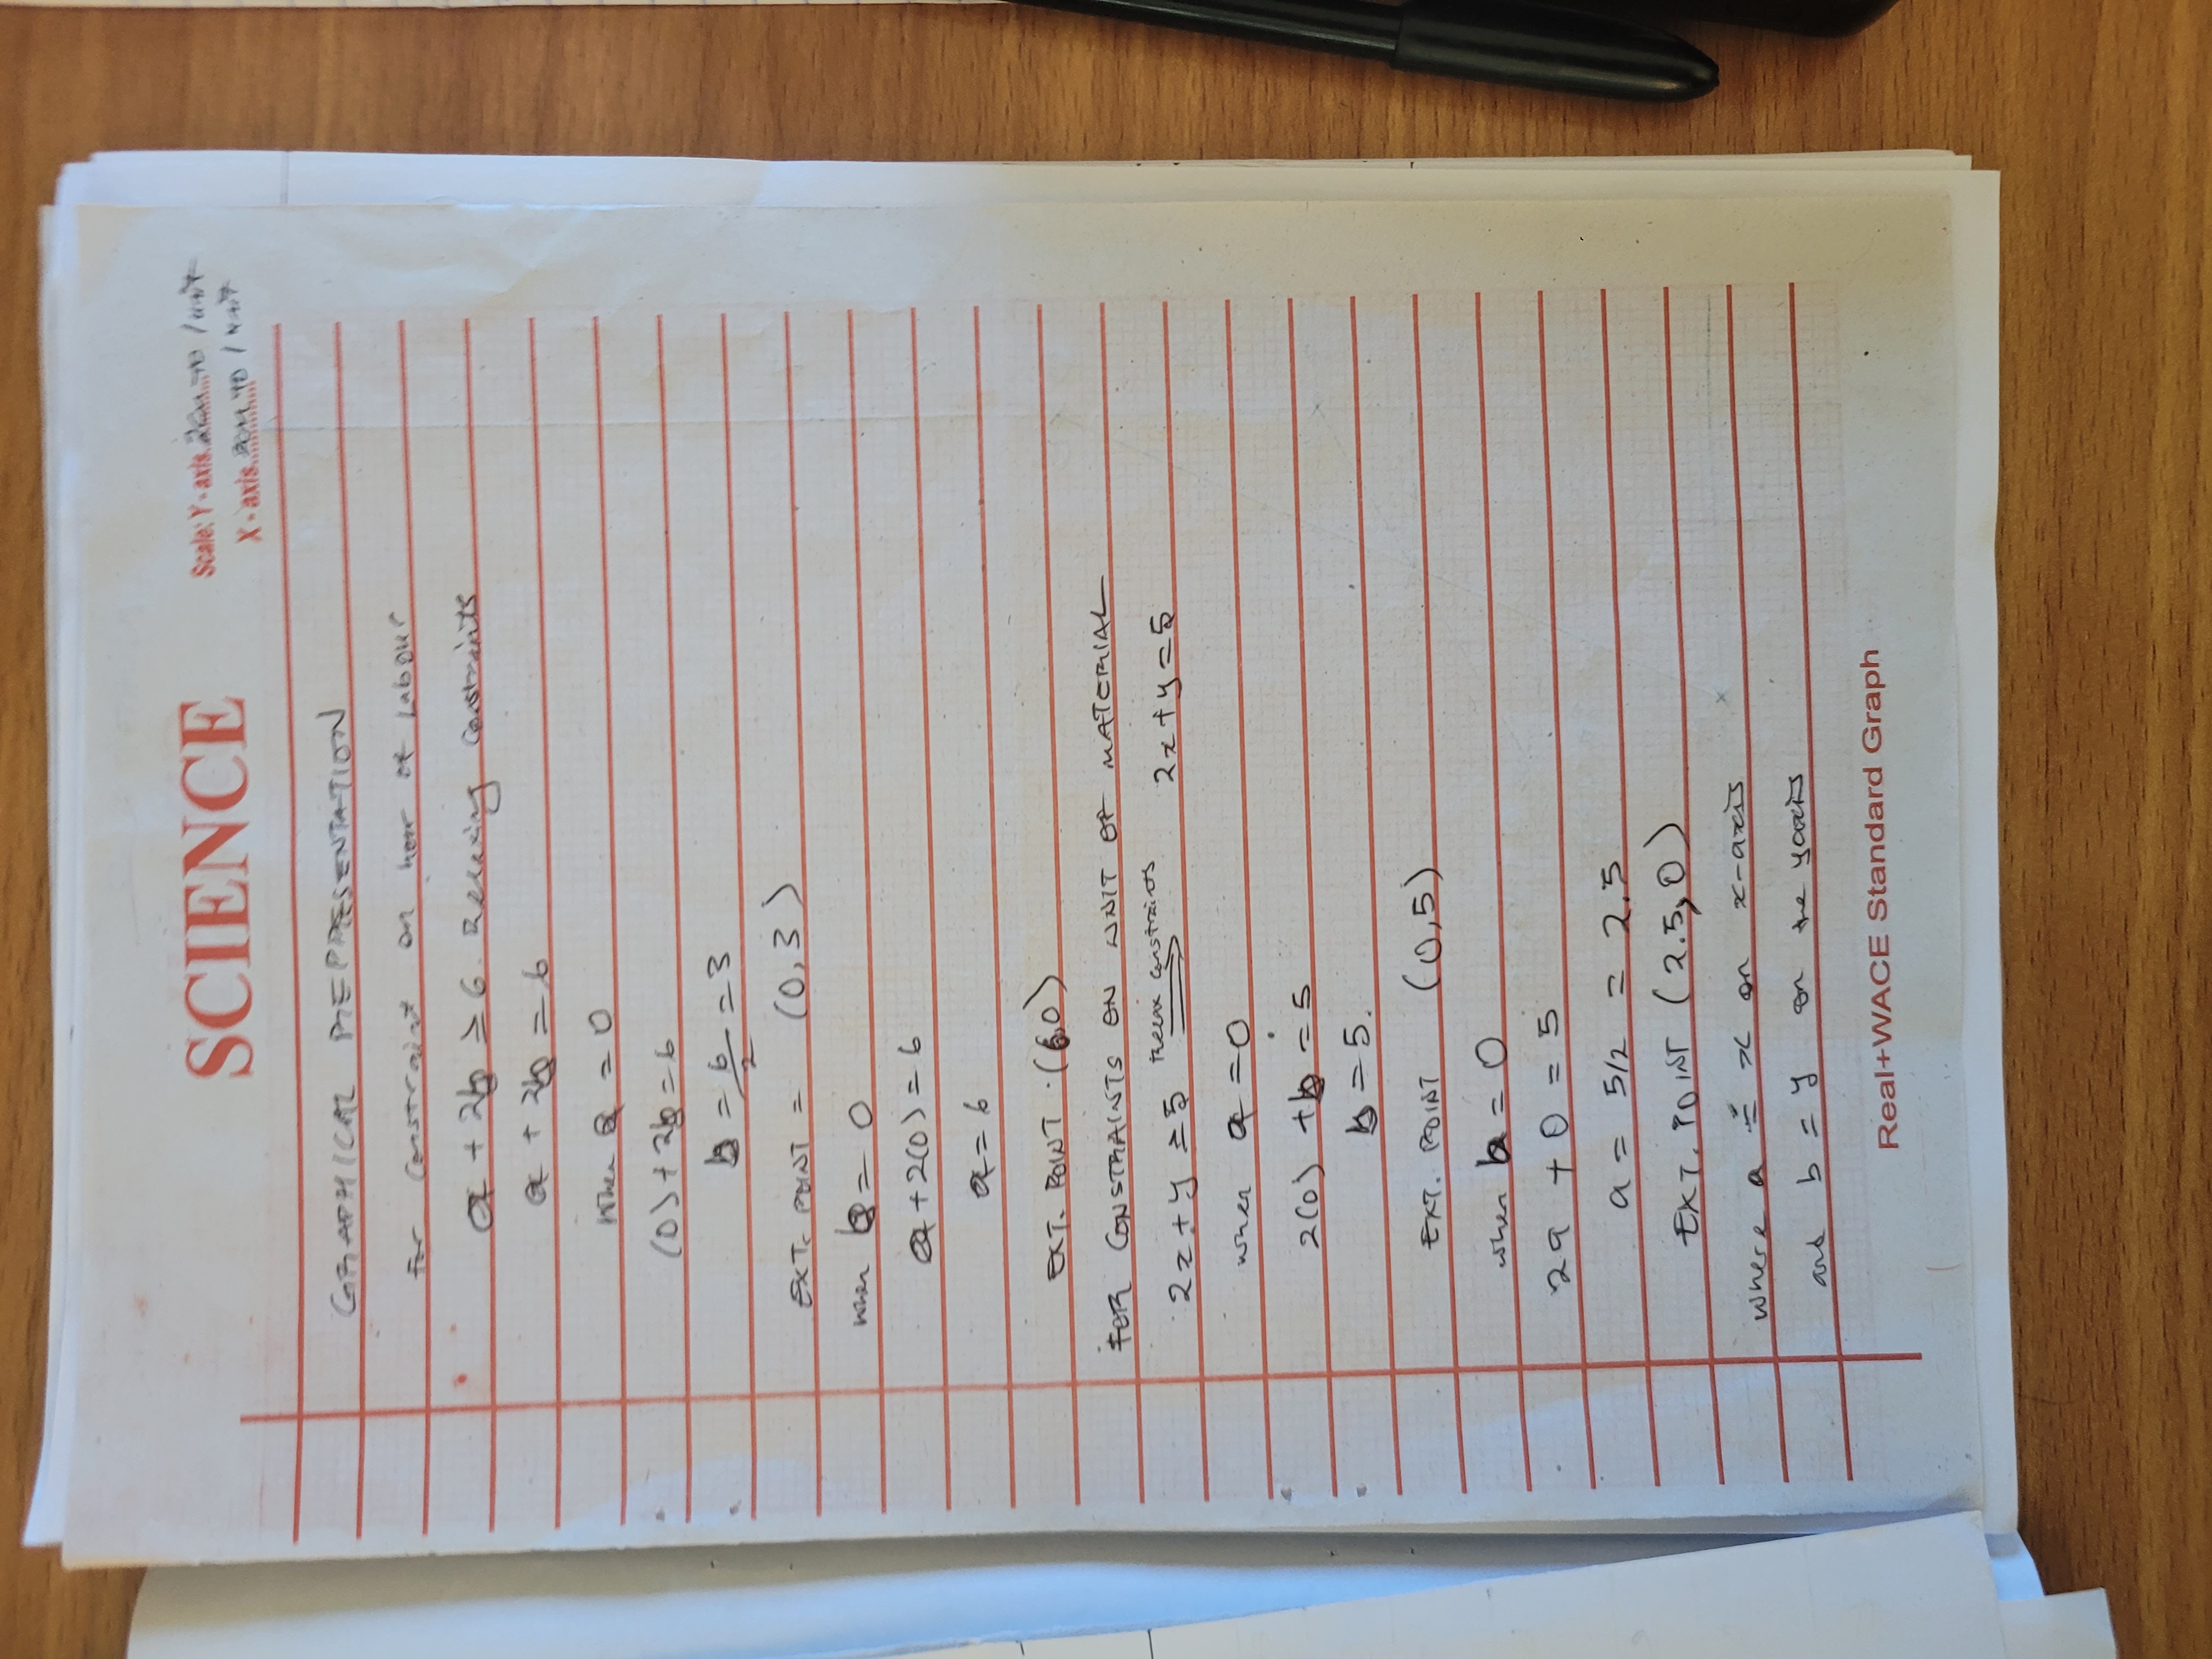 SCIENCE
Scale: Y - axis. 2cm to 1 unit
X - axis. 2cm to 1 unit
GRAPHICAL REPRESENTATION
For constraint on hour of Labour
a + 2b ≥ 6. Relaxing constraints
a + 2b = 6
when a = 0
(0) + 2b = 6
b = 6/2 = 3
EXT. POINT = (0,3)
when b = 0
a + 2(0) = 6
a = 6
EXT. POINT (6,0)
FOR CONSTRAINTS ON UNIT OF MATERIAL
2x + y ≥ 5 Relax constraints ⟹ 2x + y = 5
when a = 0
2(0) + b = 5
b = 5.
EXT. POINT (0,5)
when b = 0
2a + 0 = 5
a = 5/2 = 2.5
EXT. POINT (2.5, 0)
where a = x on x-axis
and b = y on the y axis
Real+WACE Standard Graph